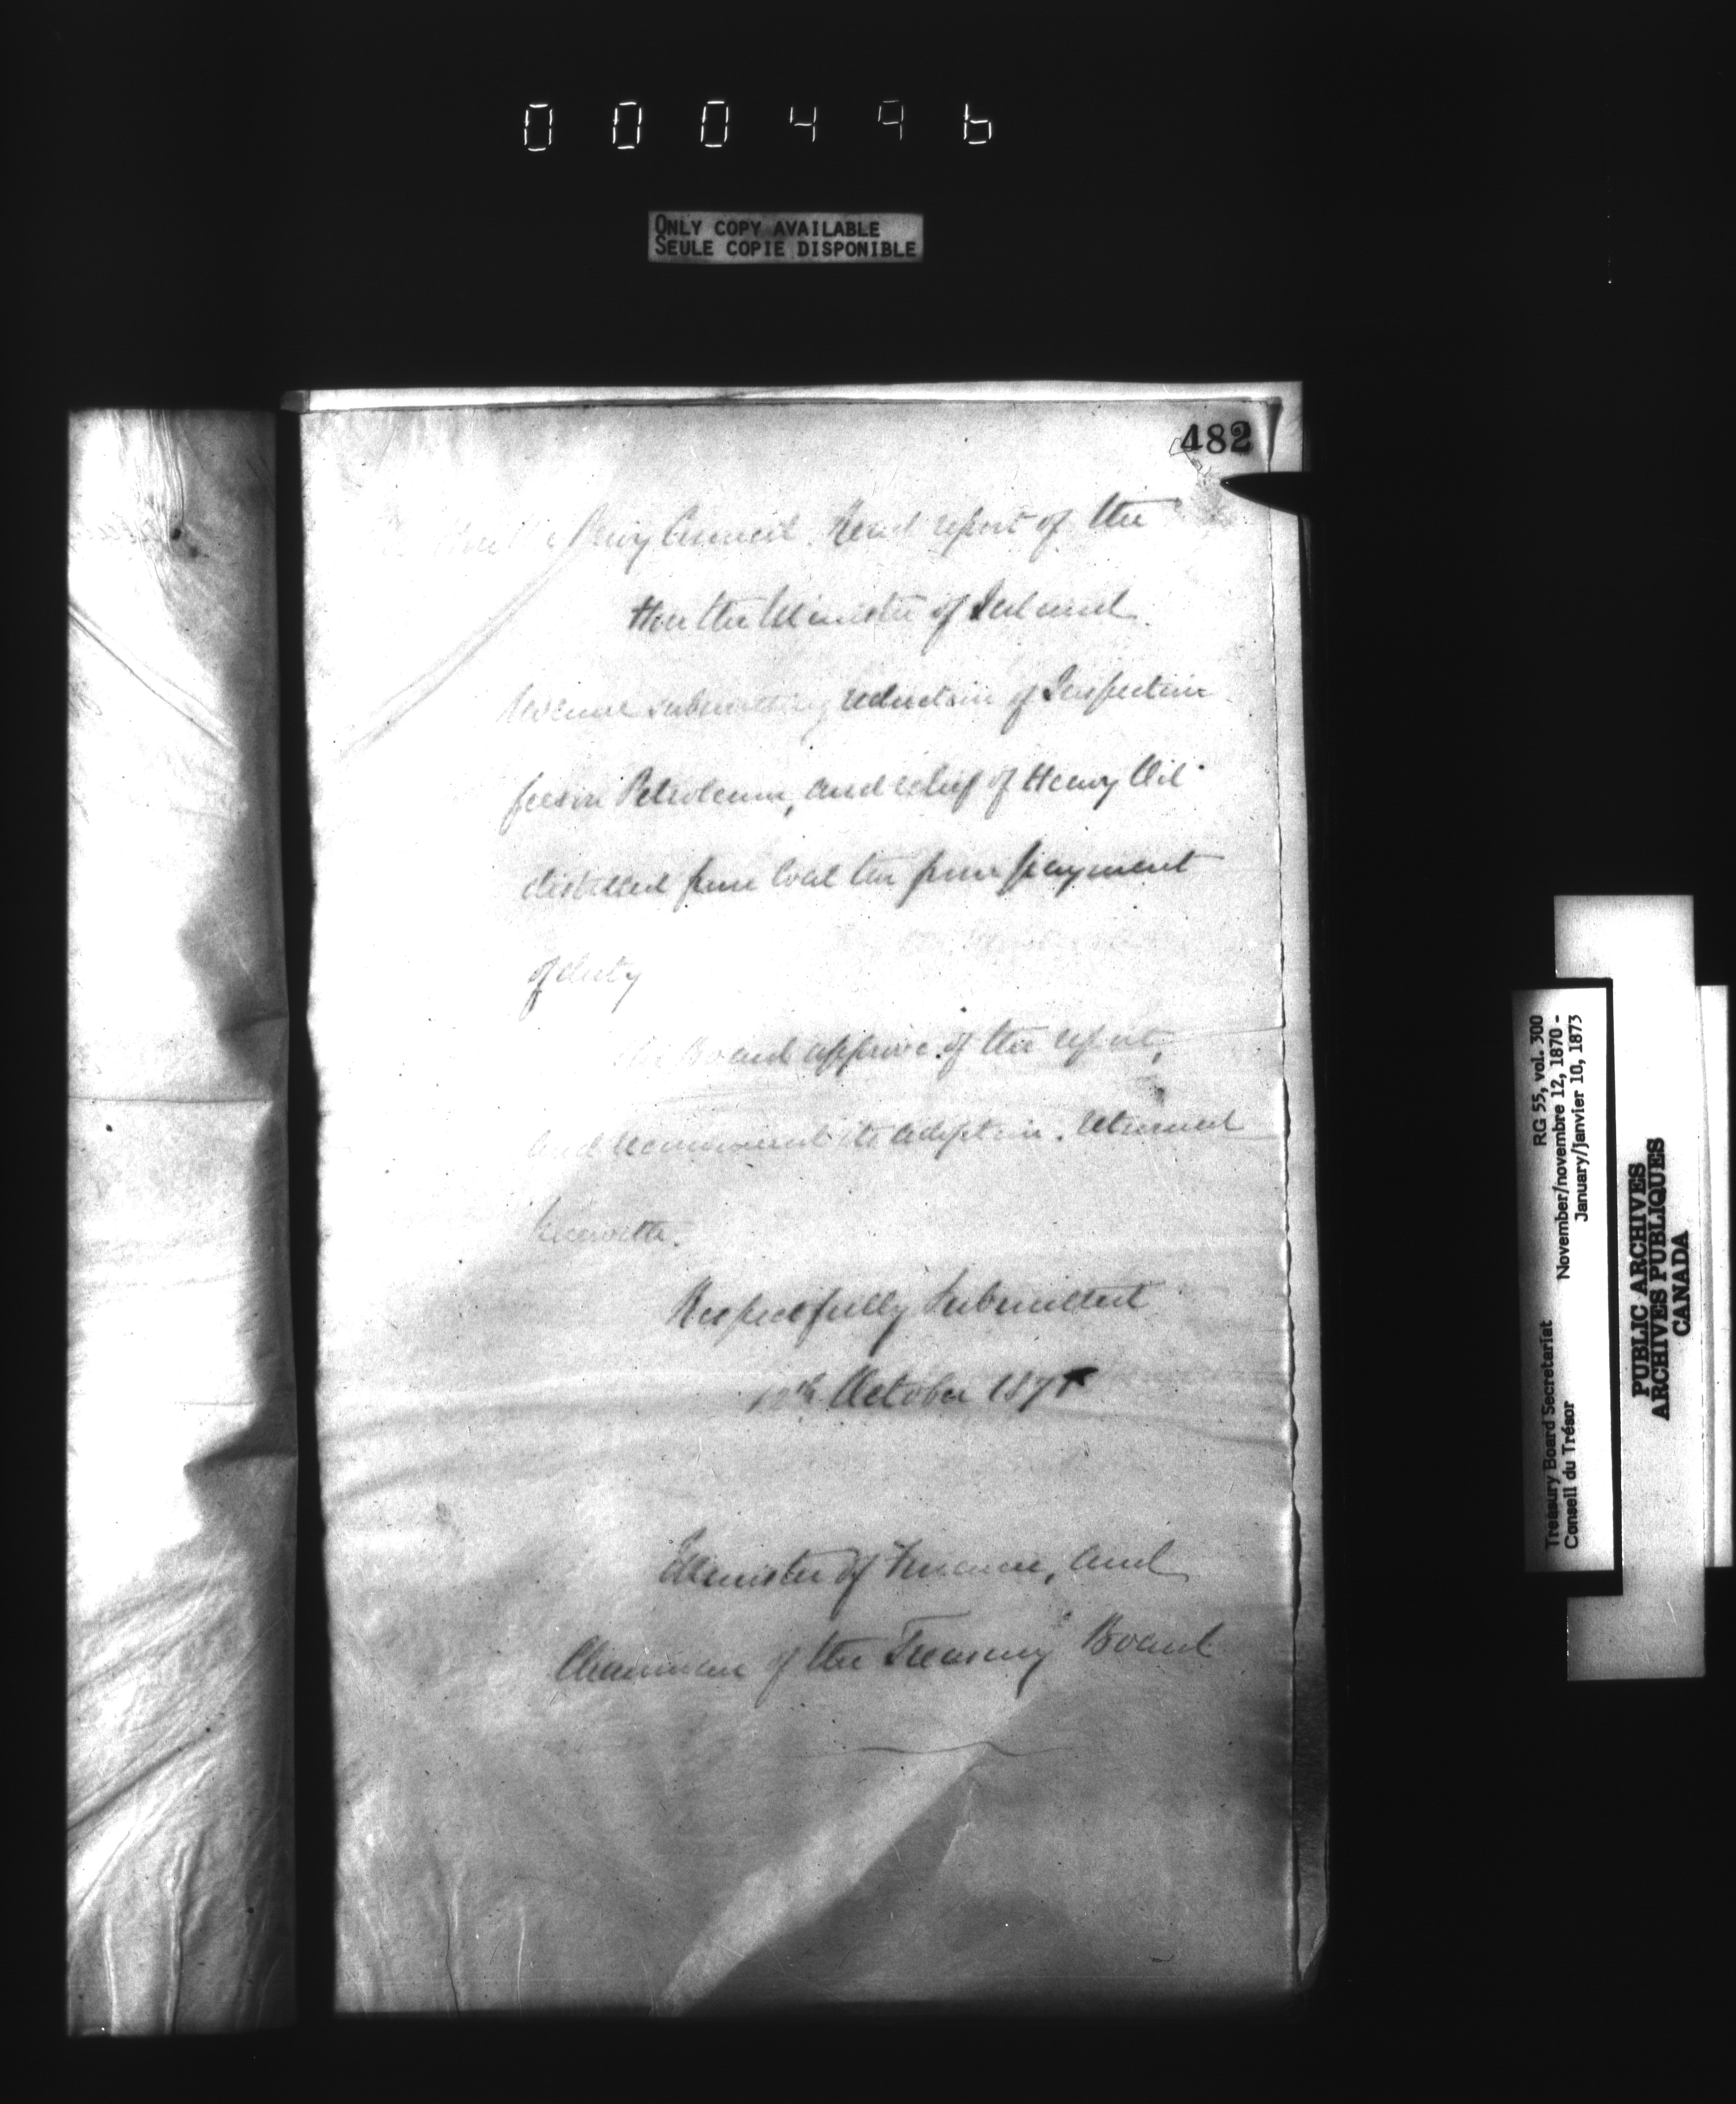 000496
ONLY COPY AVAILABLE
SEULE COPIE DISPONIBLE
482
Privy Council. Read report of the
Hon the Minister of Inland
Revenue submitting reduction of Inspection
fees on Petroleum, and relief of Heavy Oil
distilled from Coal tar from payment
of duty
The Board approve of the report,
and recommend its adoption. Returned
herewith.
Respectfully Submitted
October 1871
Minister of Finance, and
Chairman of the Treasury Board
Treasury Board Secretariat RG 55, vol. 300
Conseil du Trésor November/novembre 12, 1870 -
January/janvier 10, 1873
PUBLIC ARCHIVES
ARCHIVES PUBLIQUES
CANADA